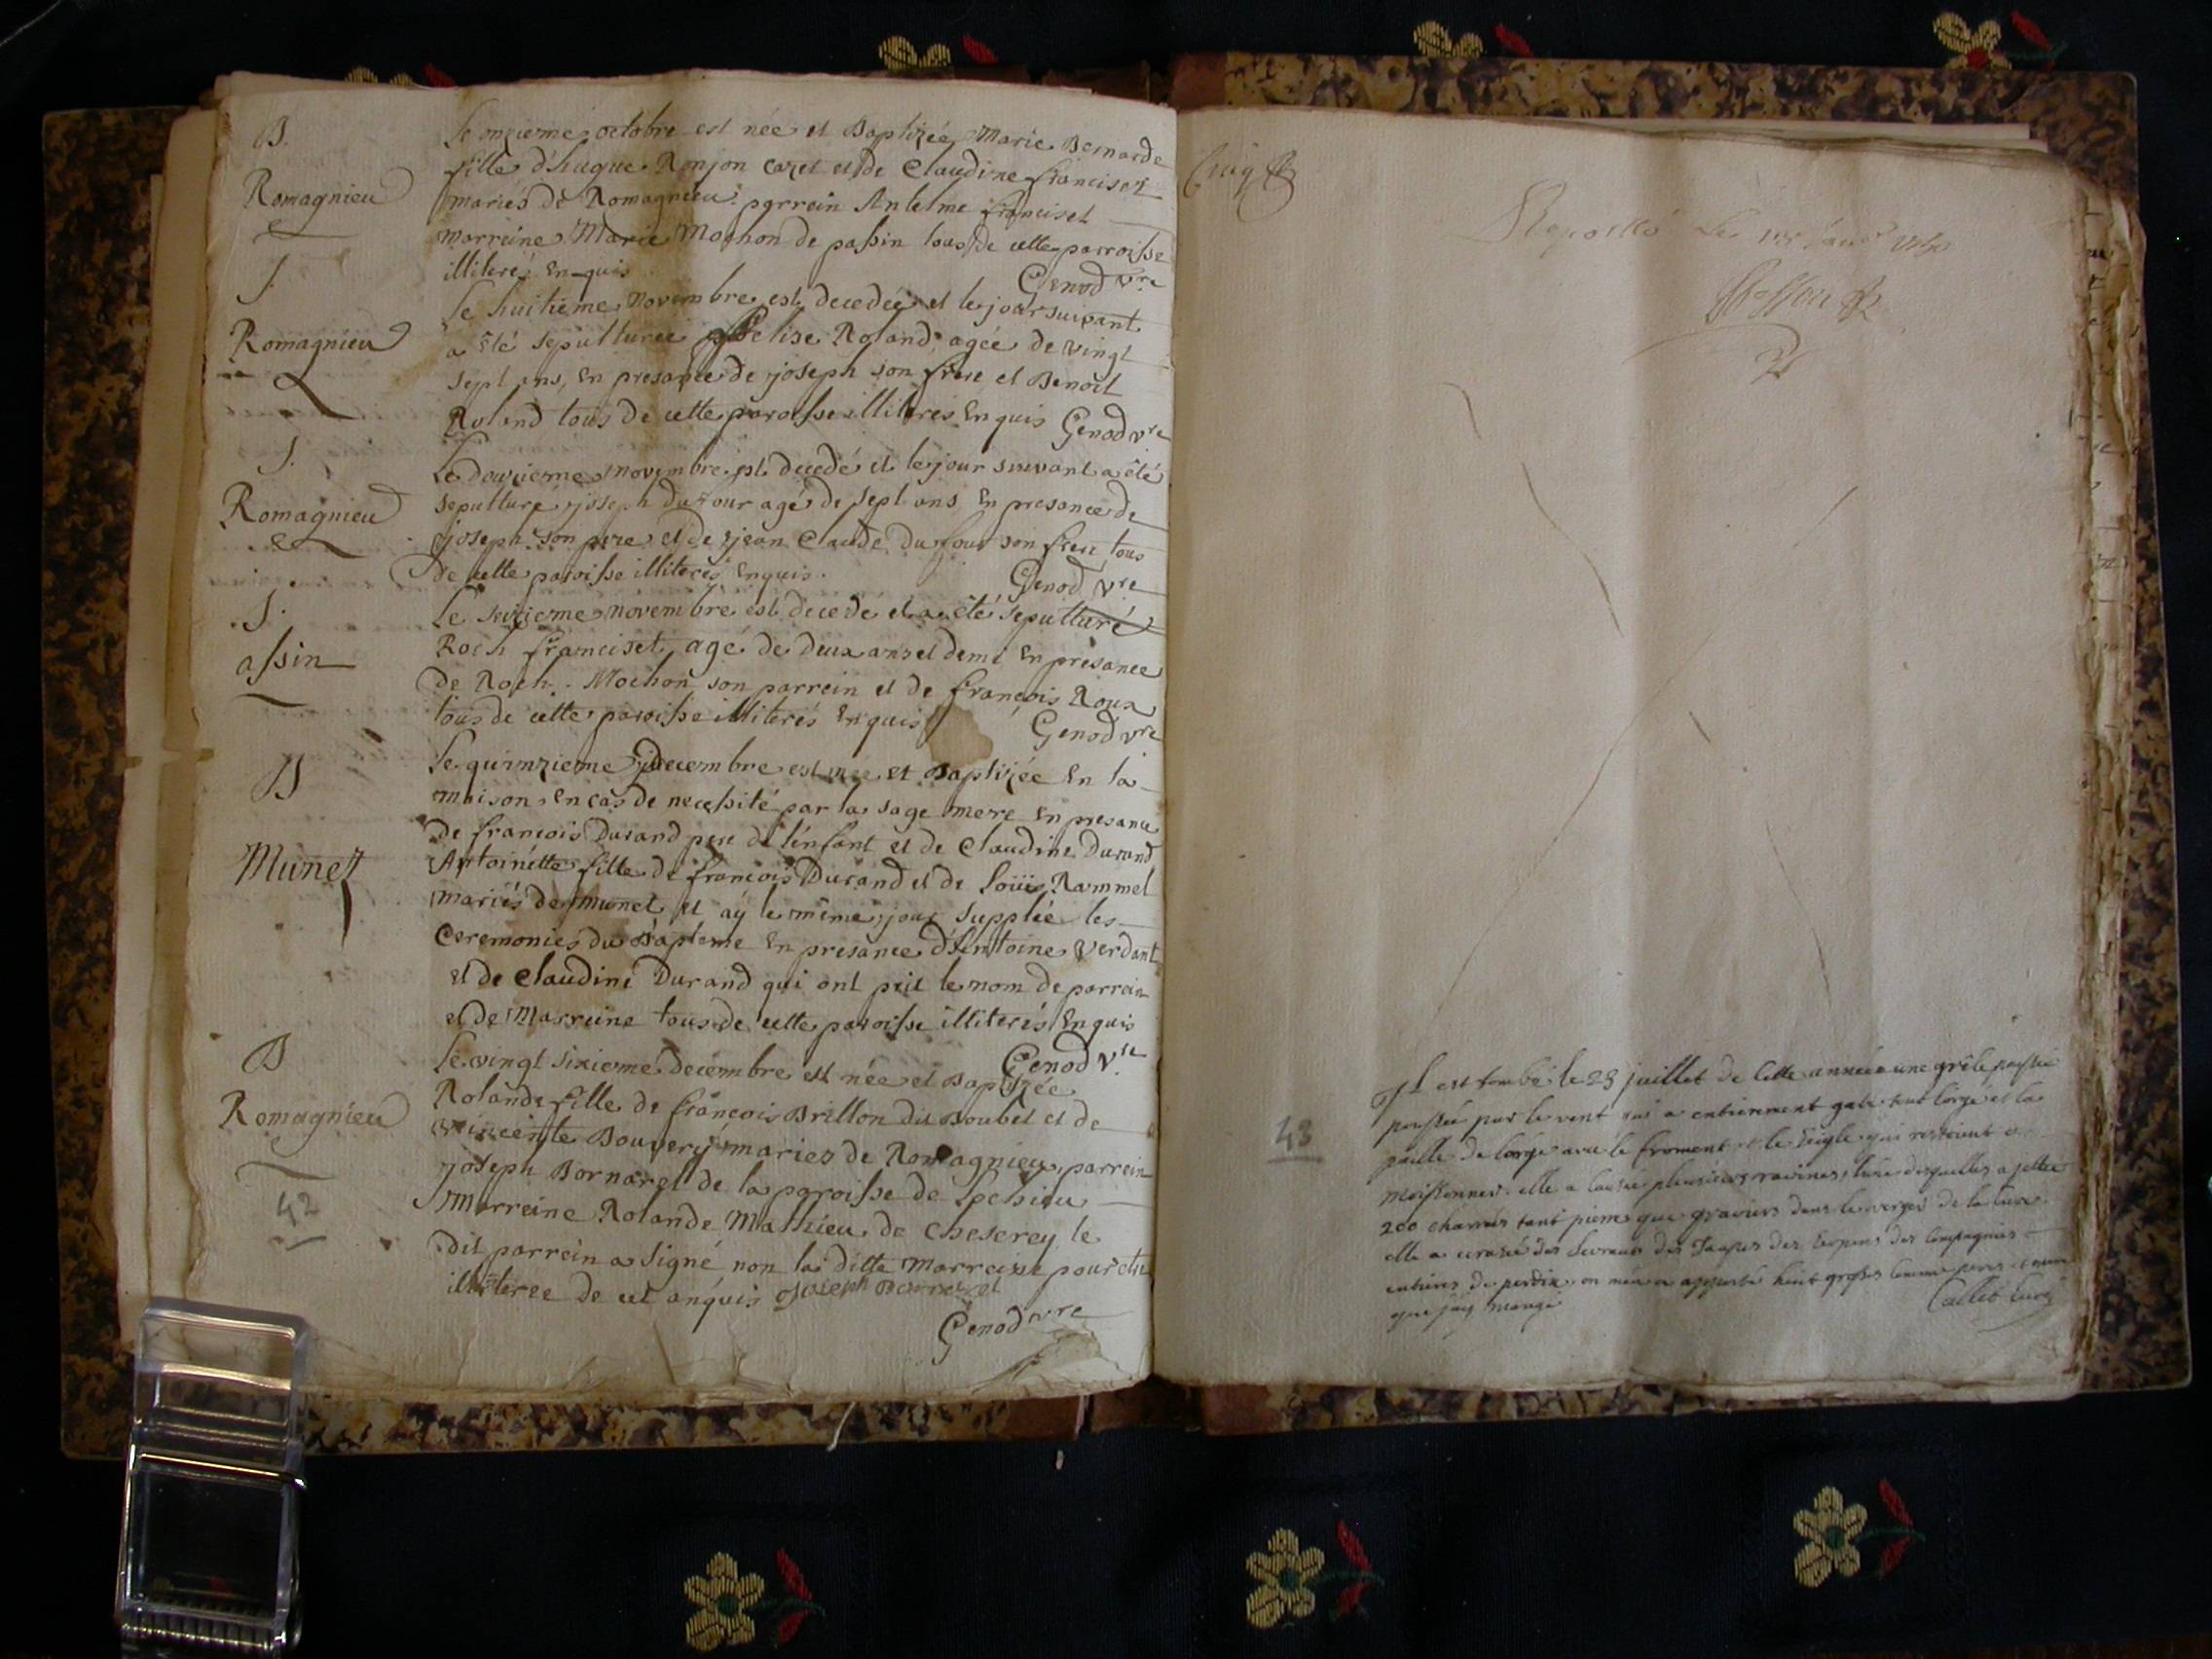 B.
Romagnieu
Le onzieme octobre est née et Baptizée Marie Bernarde
fille d'hugue Ronjon cazet et de Claudine franciset
mariés de Romagnieu. parrein Anselme franciset
marreine Marie Mochon de passin tous de cette parroisse
illiterés Enquis Genod vre
S.
Romagnieu
Le huitieme Novembre est decedée et le jour suivant
a êté sepulturée Felise Roland agée de vingt
sept ans, En presance de joseph son frere et Benoit
Roland tous de cette paroisse illiterés Enquis Genod vre
S.
Romagnieu
Le douzieme novembre est decedé et le jour suivant a êté
sepulturé joseph dufour agé de sept ans En presance de
joseph son pere et de jean Claude Dufour son frere tous
de cette paroisse illiterés Enquis. Genod vre
S.
assin
Le seizieme novembre est decedé et a êté sepulturé
Roch franciset agé de deux ans et demi En presance
de Roch Mochon son parrein et de françois Roux
tous de cette paroisse illiterés Enquis Genod vre
B
Munet
Le quinzieme decembre est née et Baptizée En la
maison En cas de necessité par la sage mere En presance
de françois Durand pere de l'enfant et de Claudine Durand
Antoinette fille de françois Durand et de Loüise Rammel
mariés de munet et aÿ le même jour Supplée les
Ceremonies du Bapteme En presance d'Antoine Verdant
et de Claudine Durand qui ont prit le nom de parrein
et de Marreine tous de cette paroisse illiterés Enquis
Genod vre
B
Romagnieu
Le vingt sixieme decembre est née et Baptizée
Rolande fille de françois Brillon dit Boubet et de
vincente Bouvery mariez de Romagnieu, parrein
joseph Bornarel de la paroisse de
Marreine Rolande Mathieu de Cheserey le
dit parrein a Signé non la ditte marreine pour etre
illiteree de cet anquis joseph Bornarel
Genod vre
42
43
Il est tombé le 25 juillet de cette année une grêle
poussée par le vent qui a entierement gaté tout l'orge et la
paille de l'orge avec le froment et le Seigle qui restoient a
moissonner. elle a causée plusieurs ravines, l'une desquelles a jettée
200 charrés tant pierre que graviers dans le verger de la cure.
elle a ecrasée des Levreaux des Taupes des Serpens des Compagnies
entieres de perdrix on m'en a apporté huit grosses comme peres et mere
que j'ay mangé Callet Curé